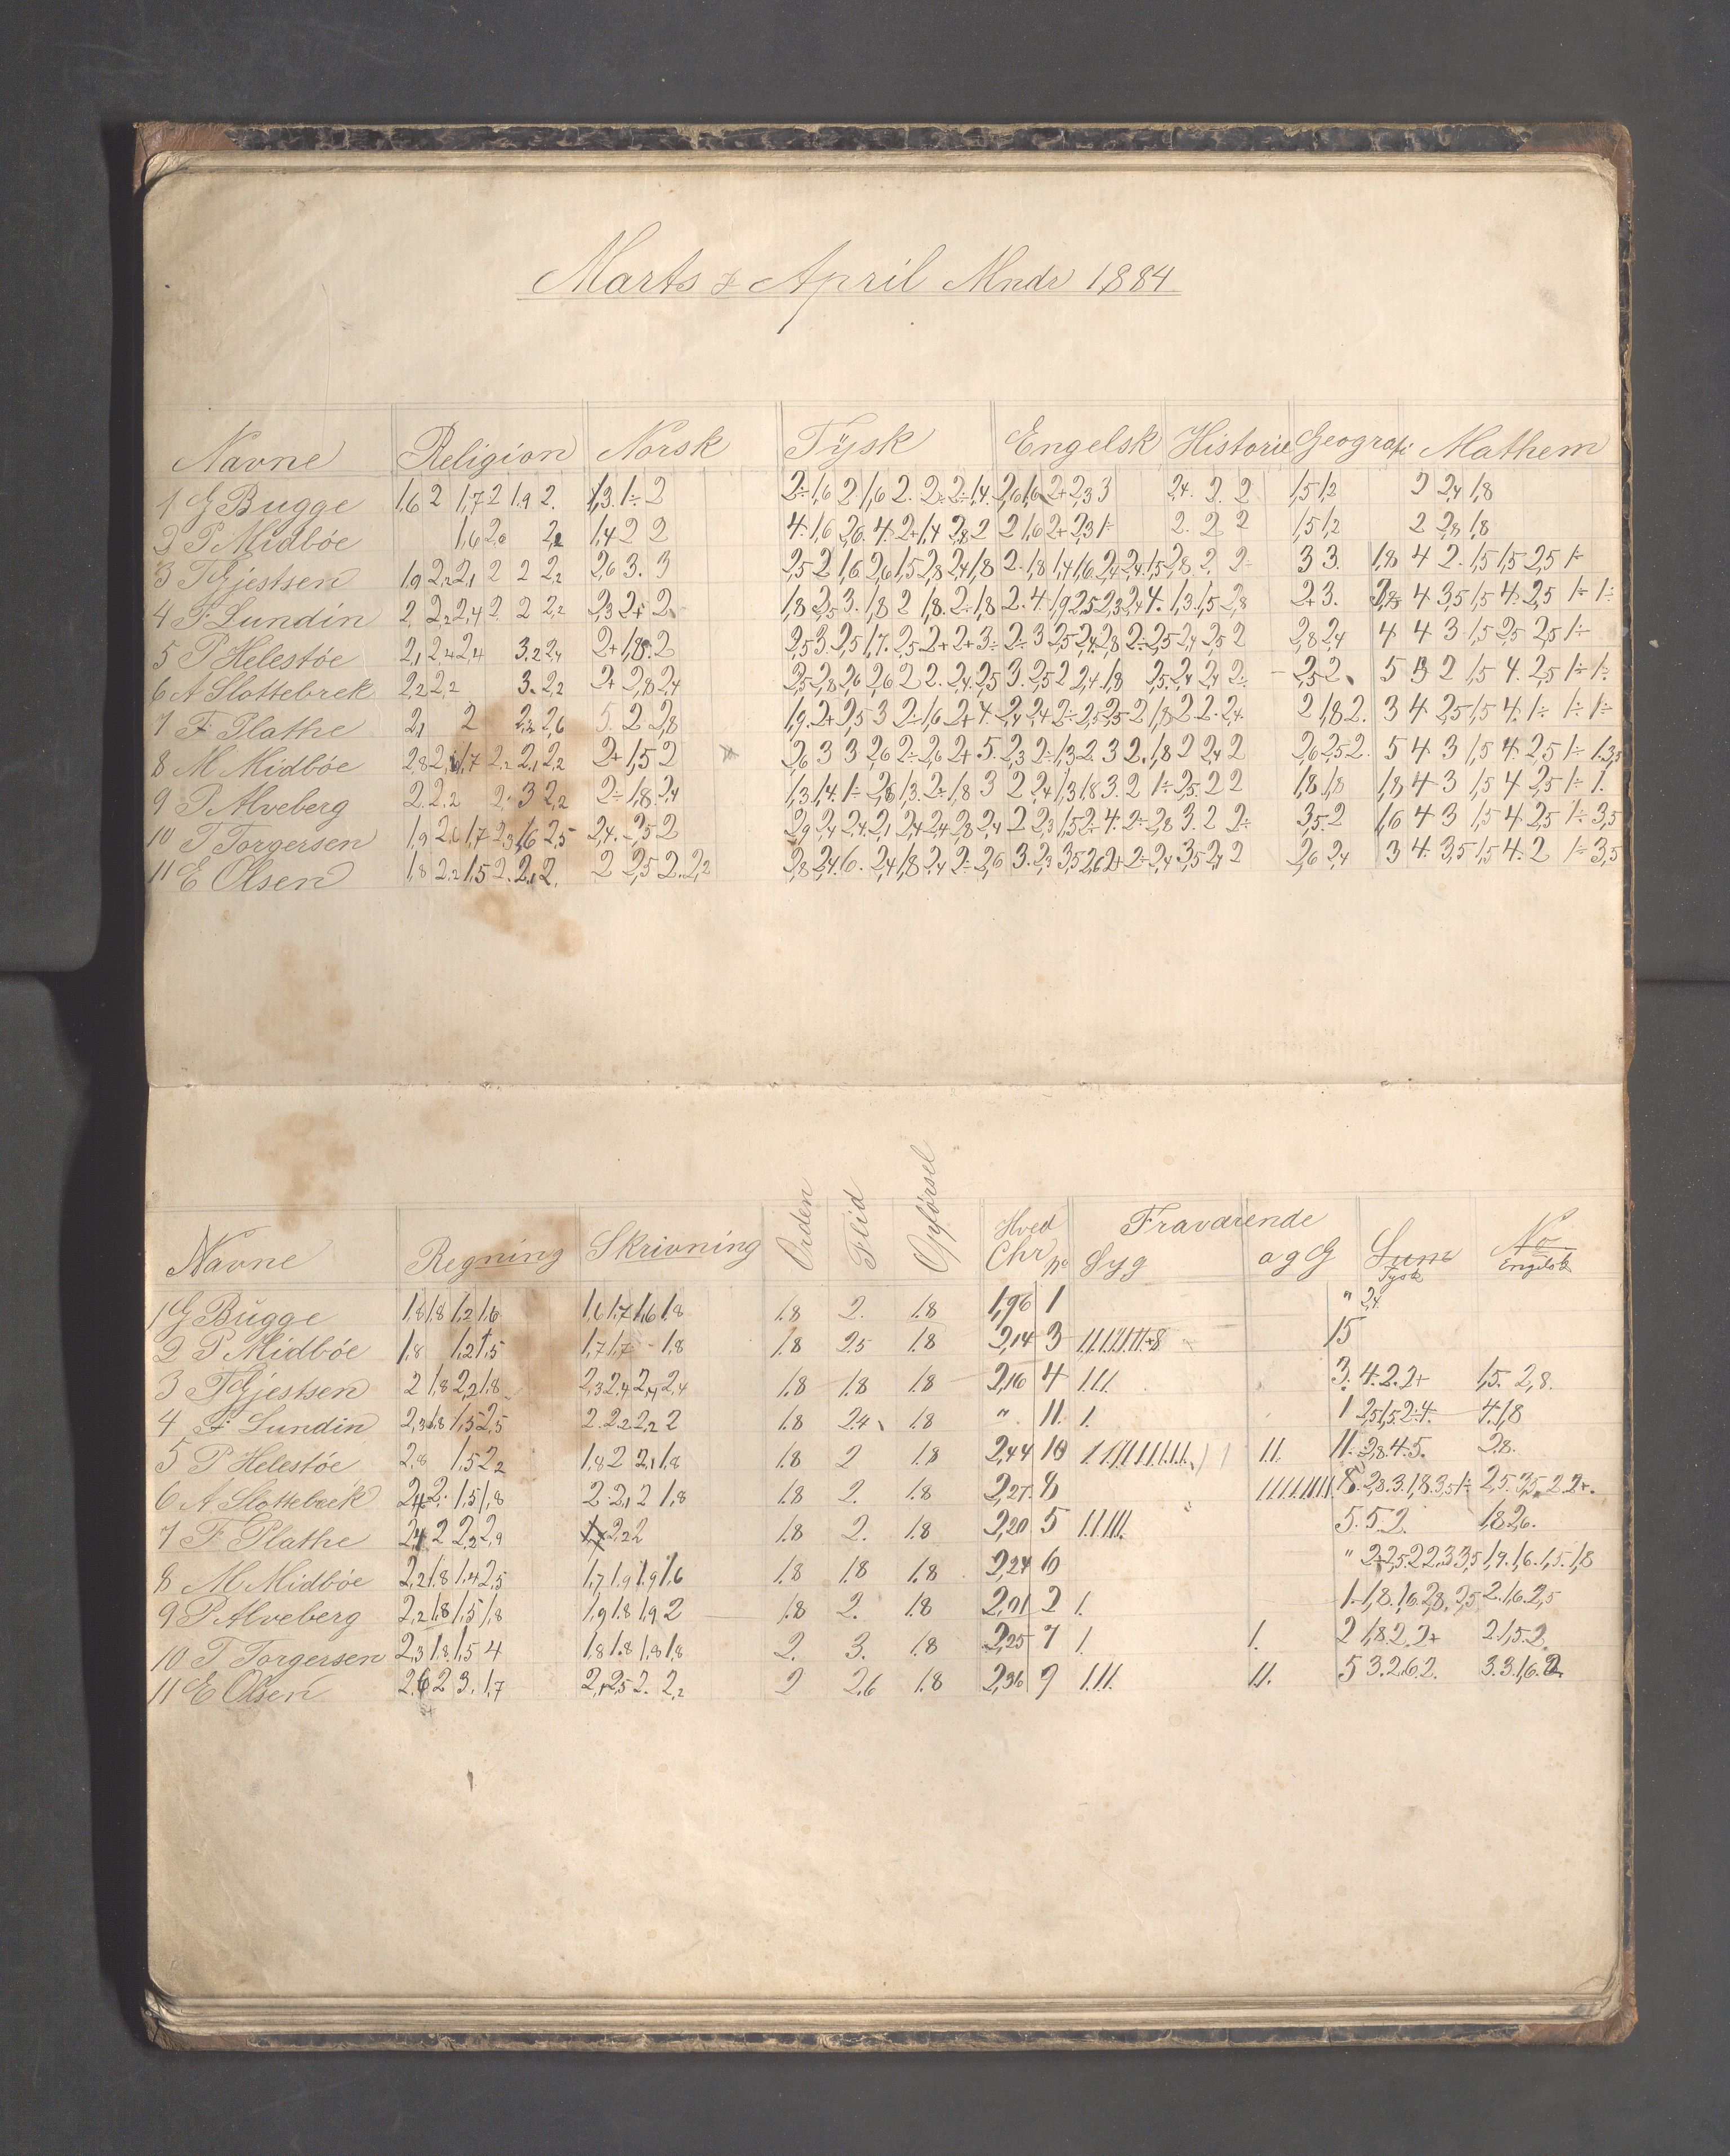 Marts & April Mndr 1884
Navne Religion Norsk Tysk Engelsk Historie Geografi Mathem
1 G Bugge 1,6 2 1,7 2 1,9 2. 1,3 1÷ 2 2÷ 1,6 2 1,6 2. 2. 2÷ 1,4. 2,6 1,6 2+ 2,3 3 2,4. 2. 2 1,5 1,2 2 2,4 1,8
2 P Midbøe 1,6 2,0 2,2 1,4 2 2 4. 1,6 2,6. 4. 2+ 1,4 2,8 2 2 1,6 2+ 2,3 1÷ 2. 2 2 1,5 1,2 2 2,8 1,8
3 T Gjestsen 1,9 2,2 2,1 2 2 2,2 2,6 3. 3 2,5 2 1,6 2,6 1,5 2,8 2,4 1,8 2. 1,8 1,4 1,6 2,4 2,4 1,5 2,8. 2. 2÷ 3 3. 1,8 4 2. 1,5 1,5 2,5 1÷
4 F. Lundin 2. 2,2 2,4 2. 2 2,2 2,3 2+ 2 1,8 2,5 3. 1,8 2 1,8. 2÷ 1,8 2. 4. 1,9 2,5 2,3 2,4 4. 1,3 1,5 2,8 2+ 3. 4 3,5 1,5 4. 2,5 1÷ 1÷
5 P Helestøe 2,1 2,4 2,4 3. 2 2,4 2+ 1,8. 2 2,5 3. 2,5 1,7. 2,5 2+ 2+ 3÷ 2÷ 3 2,5 2,4 2,8 2÷ 2,5 2,4 2,5 2 2,8 2,4 4 4 3 1,5 2,5 2,5 1÷
6 A Slottebrek 2,2 2,2 3. 2,2 2+ 2,8 2,4 2,5 2,8 2,6 2,6 2 2. 2,4 2,5 3. 2,5 2 2,4 1,8 2,5. 2,4 2,4 2÷ 2,5 2. 5 3 2 1,5 4. 2,5 1÷ 1÷
7 F Plathe 2,1 2 2,2 2,6 5. 2 2,8 1,9. 2+ 2,5 3 2÷ 1,6 2+ 4. 2,4 2,4 2÷ 2,5 2,5 2 1,8 2 2. 2,4. 2 1,8 2. 3 4 2,5 1,5 4. 1÷ 1÷ 1÷
8 M Midbøe 2,8 2. 1,7 2,2 2,1 2,2 2+ 1,5 2 2,6 3 3 2,6 2÷ 2,6 2+ 5. 2,3 2÷ 1,3 2. 3 2. 1,8 2 2,4 2 2,6 2,5 2. 5 4 3 1,5 4. 2,5 1÷ 1. 3,5
9 P Alveberg 2. 2. 2 2. 3 2,2 2÷ 1,8. 2,4 1,3 1,4. 1÷ 2,8 1,3. 2÷ 1,8 3 2 2,4 1,3 1,8 3. 2 1÷ 2,5. 2 2 1,8 1,8 1,8 4 3 1,5 4 2,5 1÷ 1.
10 T Torgersen 1,9 2,6 1,7 2,3 1,6 2,5 2,4. 2,5 2 2,9 2,4 2,4. 2,1 2,4 2,4 2,8 2,4 2 2,3 1,5 2÷ 4. 2÷ 2,8 3. 2 2÷ 3,5. 2 1,6 4 3 1,5 4 2,5 1÷ 3,5
11 E Olsen 1,8 2,2 1,5 2. 2,1 2. 2 2,5 2. 2,2 2,8 2,4. 6. 2,4 1,8 2,4 2÷ 2,6 3. 2,3 3,5 2,6 2+ 2÷ 2,4 3,5 2,4 2 2,6 2,4 3 4. 3,5 1,5 4. 2 1÷ 3,5
Navne Regning Skrivning Orden Flid Opførsel Hved Chr No Fraværende Syg a g G Sum Tysk No Engelsk
1 G Bugge 1,8 1,8 1,2 1,6 1,6 1,7 1,6 1,8 1.8 2. 1.8 1,96 1 " 2,4.
2 P Midbøe 1,8 1,2 1,5 1,7 1,7 - 1,8 1.8 2.5 1.8 2,14 3 15
3 T Gjestsen 2 1,8 2,2 1,8 2,3 2,4 2,4 2,4 1.8 1.8 1.8 2,16 4 1.1.1. 3. 4. 2. 2+ 1,5. 2,8.
4 F. Lundin 2,3 1,8 1,5 2,5 2. 2,2 2,2 2 1.8 2.4 1.8 " 11. 1. 1 2,5 1,5. 2÷ 4. 4. 1,8
5 P Helestøe 2,8 1,5 2,2 1,8 2 2,1 1,8 1.8 2 1.8 2,44 10 11. 11. 2,8. 4. 5. 2,8.
6 A Slottebrek 2,4 2. 1,5 1,8 2. 2,1 2 1,8 1.8 2. 1.8 2,27. 8 8. 2,8. 3. 1,8. 3,5 1÷ 2,5. 3,5. 2. 2+.
7 F Plathe 2,4 2 2,2 2,9 2,2 2 1.8 2. 1.8 2,20 5 5. 5. 2. 1,8 2,6.
8 M Midbøe 2,2 1,8 1,4 2,5 1,7 1,9 1,9 1,6 1.8 1.8 1.8 2,24 6 " 2+ 2,5 2 2,3 3,5 1,9. 1,6. 1,5. 1,8
9 P Alveberg 2,2 1,8 1,5 1,8 1,9 1,8 1,9 2 1.8 2. 1.8 2,01 2 1. 1. 1,8. 1,6. 2,8. 2,5 2. 1,6. 2,5
10 T Torgersen 2,3 1,8. 1,5 4 1,8 1,8 1,8 1,8 2. 3. 1.8 2,25 7 1. 1. 2 1,8. 2. 2+ 2. 1,5. 2.
11 E Olsen 2.6 2 3. 1,7 2,1 2,5 2. 2,2 2 2.6 1.8 2,36 9 1.1.1. 1.1. 5 3. 2,6. 2. 3. 3. 1,6. 2.